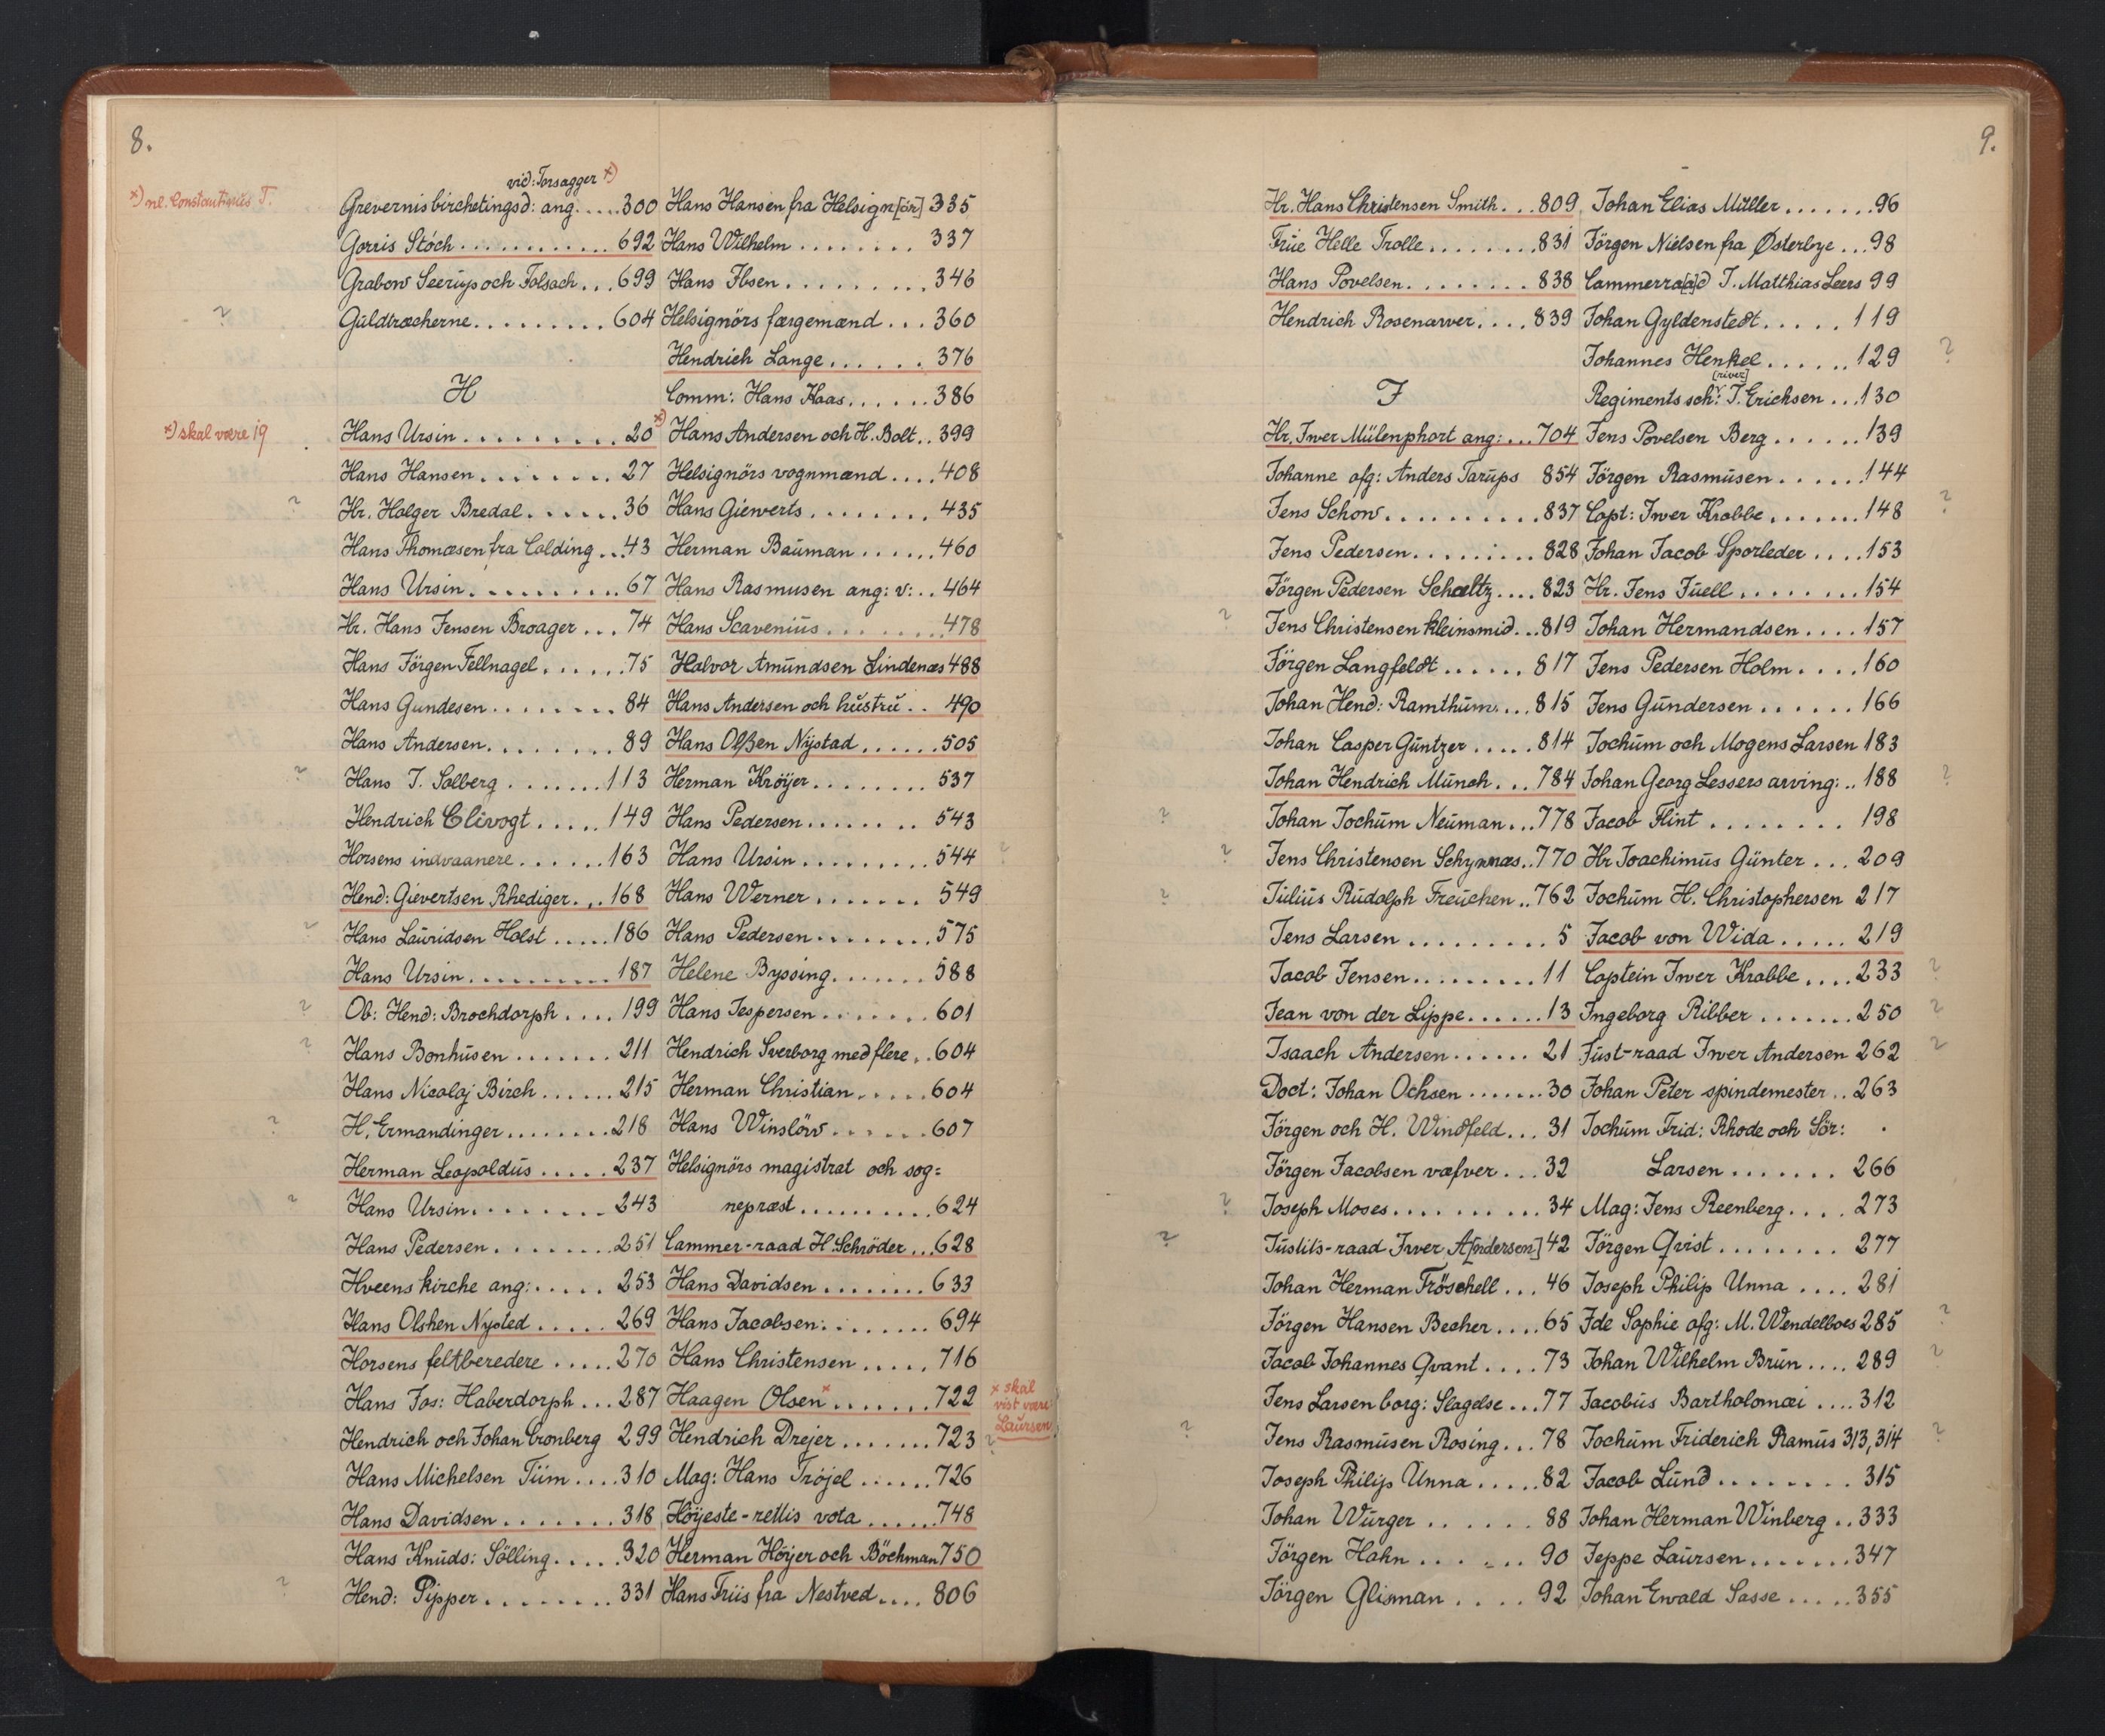 8.
vid: Torsagger x)
x) nl. Constantinus T.
Grevernis birchetingsd: ang. .... 300
Gorris Stöch ............ 692
Grabow Seerup och Folsach ... 699
? Güldtræcherne ......... 604
H
x) skal være 19
Hans Ursin ......... 20 x)
Hans Hansen ....... 27
? Hr. Holger Bredal ...... 36
Hans Thomæsen fra Colding .. 43
Hans Ursin ......... 67
Hr. Hans Jensen Broager ... 74
Hans Jörgen Fellnagel ...... 75
Hans Gundesen ........ 84
Hans Andersen ........ 89
? Hans J. Solberg ....... 113
Hendrich Clivogt ..... 149
Horsens indvaanere ...... 163
Hend: Gievertsen Rhediger ... 168
? Hans Lauridsen Holst ..... 186
Hans Ursin .......... 187
? Ob: Hend: Brochdorph .... 199
? Hans Bonhüsen ....... 211
Hans Nicolaj Birch ...... 215
? H. Ermandinger ........ 218
Herman Leopoldüs ..... 237
? Hans Ursin ........ 243
Hans Pedersen ........ 251
Hveens kirche ang: ..... 253
Hans Olshen Nysted ..... 269
Horsens feltberedere ..... 270
Hans Jos: Haberdorph ... 287
Hendrich och Johan Cronberg 299
Hans Michelsen Tüm .... 310
Hans Davidsen ....... 318
Hans Knuds: Sölling ..... 320
? Hend: Pipper ........ 331
Hans Hansen fra Helsign[ör] 335
Hans Wilhelm ........ 337
Hans Ibsen ......... 346
Helsignörs færgemænd ... 360
Hendrich Lange ...... 376
Comm: Hans Kaas ...... 386
Hans Andersen och H. Bolt .. 399
Helsignörs vognmænd .... 408
Hans Giewerts ........ 435
Herman Baüman ...... 460
Hans Rasmusen ang: v: .. 464
Hans Scavenius ........ 478
Halvor Amündsen Lindenæs 488
Hans Andersen och hüstrü .. 490
Hans Olßen Nystad ...... 505
Herman Kröÿer ........ 537
Hans Pedersen ....... 543
Hans Ursin ......... 544 ?
Hans Werner ....... 549
Hans Pedersen ........ 575
Helene Byssing ....... 588
Hans Jespersen ....... 601
Hendrich Sverborg med flere .. 604
Herman Christian ..... 604
Hans Winslöw ...... 607
Helsignörs magistrat och sog=
nepræst .......... 624
Cammer-raad H Schröder ... 628
Hans Davidsen ........ 633
Hans Jacobsen ........ 694
Hans Christensen ..... 716
Haagen Olsen x ....... 722
x skal
vist være
Laursen
Hendrich Drejer ....... 723 ?
Mag: Hans Tröjel ...... 726
Höyeste-rettis vota ...... 748
Herman Höyer och Böchman 750
Hans Friis fra Nestved .... 806
9.
Hr. Hans Christensen Smith ... 809
Frue Helle Trolle ........ 831
Hans Povelsen ........ 838
Hendrich Rosenarver .... 839
J
Hr. Iwer Mülenphort ang: ... 704
Johanne afg: Anders Tarups 854
Jens Schow .......... 837
Jens Pedersen ........ 828
Jörgen Pedersen Schæltz .... 823
? Jens Christensen kleinsmid ... 819
Jörgen Langfeldt ...... 817
Johan Hend: Ramthüm .... 815
Johan Casper Güntzer ..... 814
Johan Hendrich Munch ... 784
? Johan Jochüm Neüman ... 778
? Jens Christensen Schynnæs .. 770
? Jülius Rudolph Freüchen .. 762
Jens Larsen ......... 5
Jacob Jensen ......... 11
Jean von der Lippe ...... 13
Isaach Andersen ...... 21
Doct: Johan Ochsen ....... 30
Jörgen och H. Windfeld ... 31
Jörgen Jacobsen væfver ... 32
? Joseph Moses .......... 34
? Jüstits-raad Iwer A[ndersen] 42
Johan Herman Fröschell ... 46
Jörgen Hansen Becher .... 65
Jacob Johannes Qvant .... 73
Jens Larsen borg: Slagelse ... 77
? Jens Rasmüsen Rosing ... 78
Joseph Philip Unna ..... 82
Johan Würger ...... 88
Jörgen Hahn ...... 90
Jörgen Glisman .... 92
Johan Elias Müller ....... 96
Jörgen Nielsen fra Østerbye ... 98
Cammerra[a]d J. Matthias Leers 99
Johan Gyldenstedt ..... 119
Johannes Henkel ...... 129 ?
[river]
Regiments schr: J. Erichsen ... 130
Jens Povelsen Berg ...... 139
Jörgen Rasmüsen ...... 144
Capt: Iwer Krabbe ....... 148 ?
Johan Jacob Sporleder .... 153
Hr. Jens Juell ........ 154
Johan Hermandsen .... 157
Jens Pedersen Holm .... 160
Jens Gündersen ...... 166
Jochum och Mogens Larsen 183
Johan Georg Lessers arving: .. 188 ?
Jacob Flint ........ 198
Hr Joachimüs Günter ... 209
Jochum H. Christophersen 217
Jacob von Wida ..... 219
Captein Iwer Krabbe .... 233 ?
Ingeborg Ribber ....... 250 ?
Just-raad Iwer Andersen 262 ?
Johan Peter spindemester .. 263
Jochum Frid: Rhode och Sör:
Larsen ....... 266
Mag: Jens Reenberg .... 273
Jörgen Qvist ........ 277
Joseph Philip Unna .... 281
Ide Sophie afg: M. Wendelboes 285 ?
Johan Wilhelm Brun .... 289 ?
Jacobüs Bartholomæi .... 312
Jochum Friderich Ramüs 313, 314 ?
Jacob Lünd ........ 315
Johan Herman Winberg .. 333
Jeppe Laursen ....... 347
Johan Ewald Sasse ..... 355